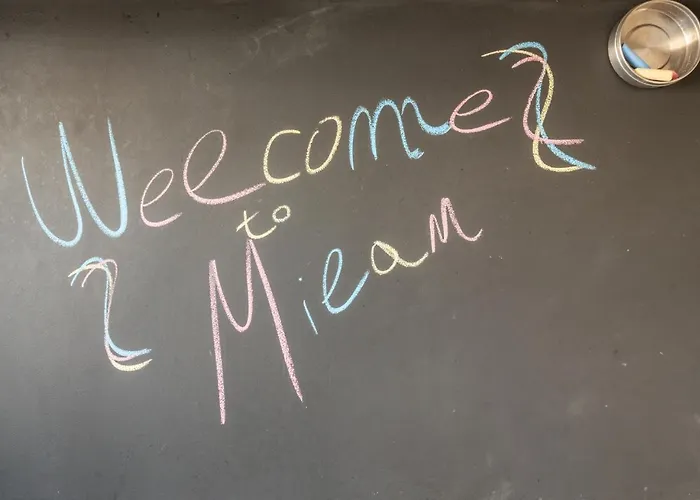 Welcome
to
Milan